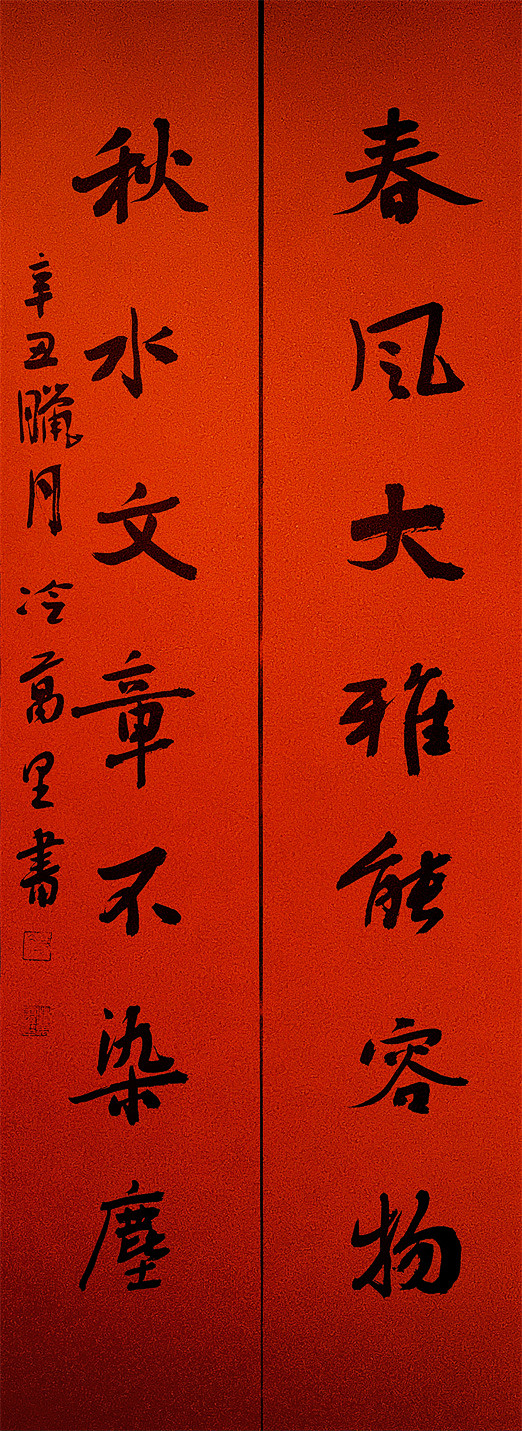 春风大雅能容物
秋水文章不染塵
辛丑臘月冷萬里書